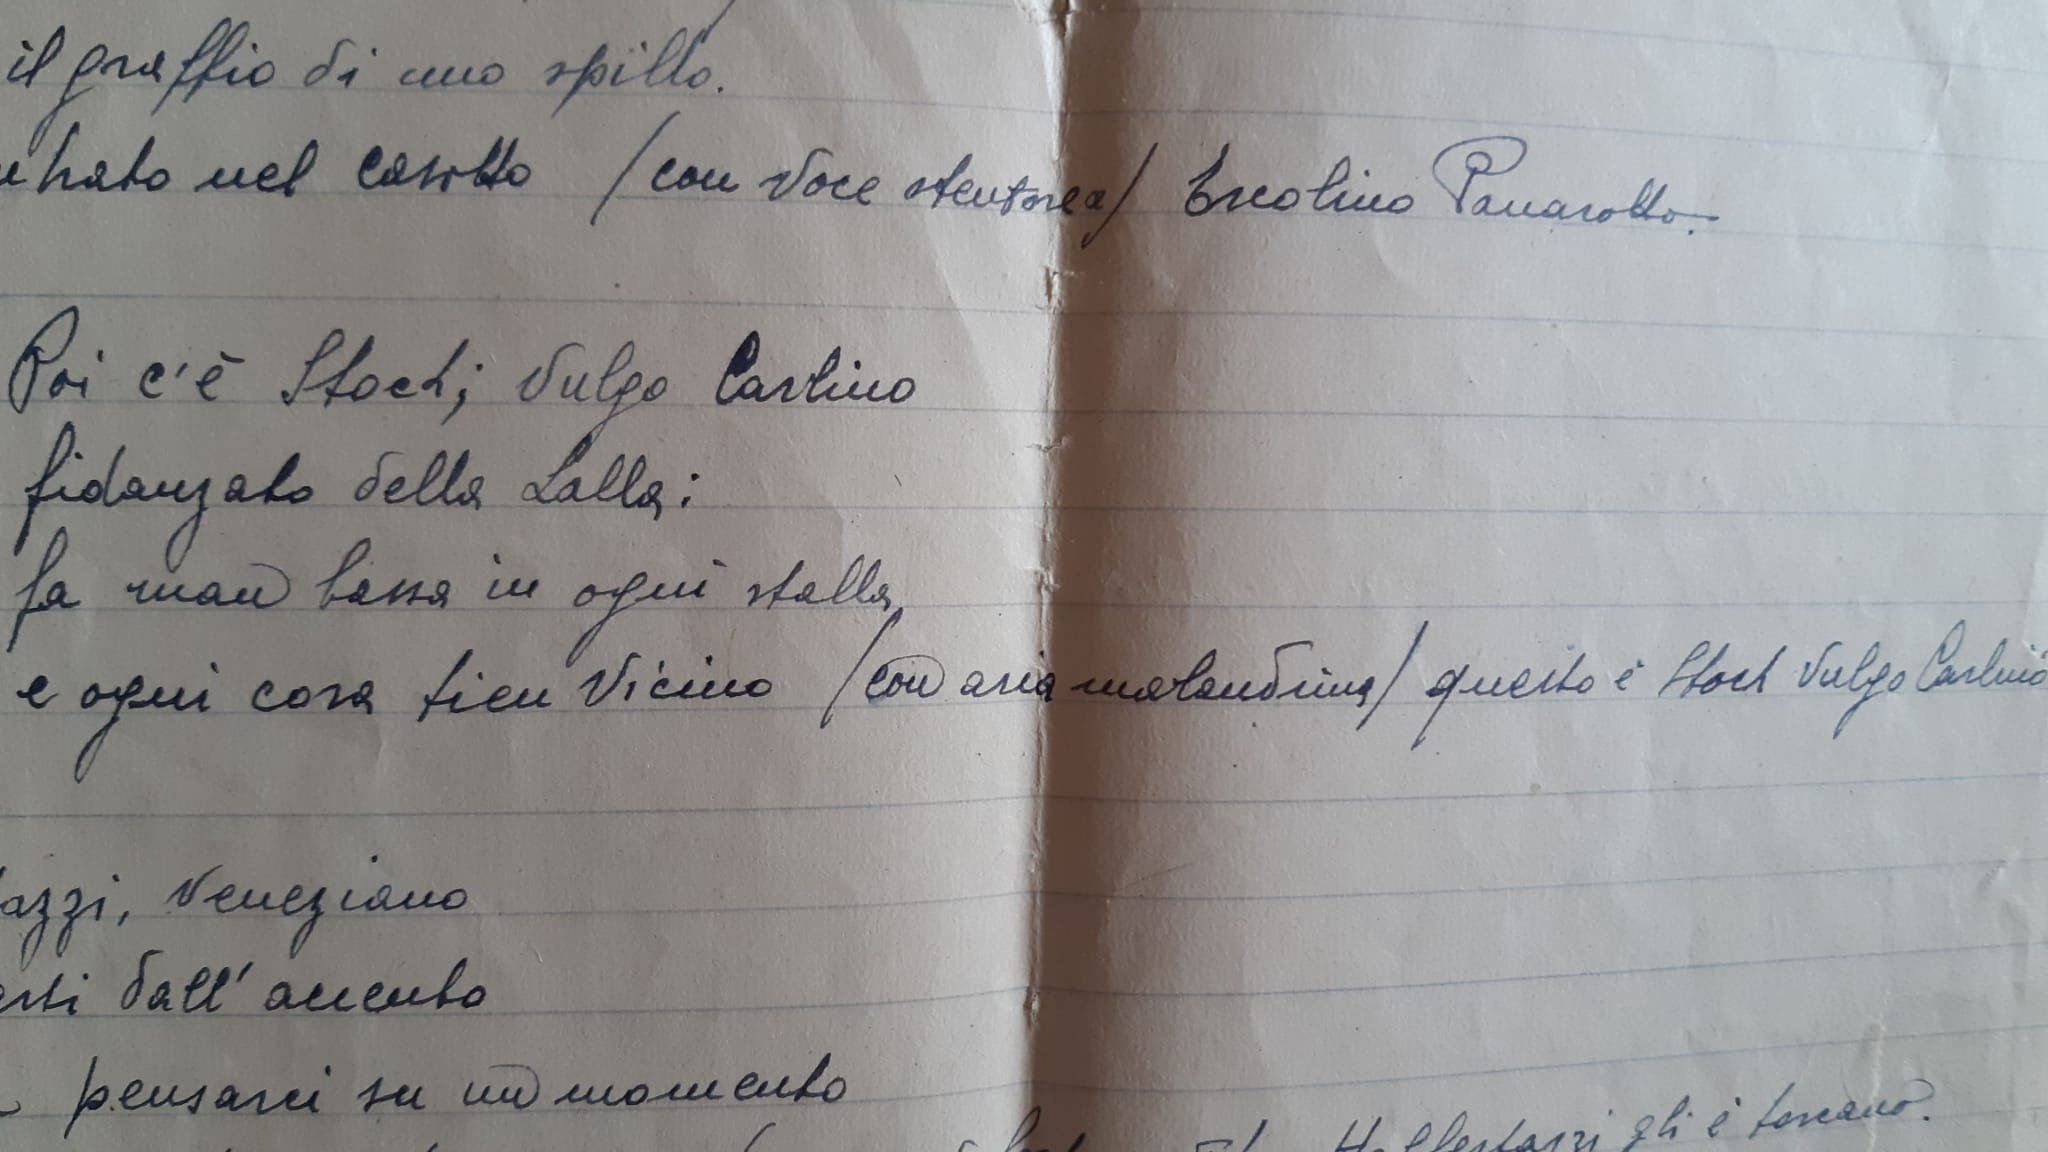 il graffio di uno spillo.
nel casotto (con voce stentorea) Ercolino Panarotto.
Poi c'è Stoch; vulgo Carlino
fidanzato della Lalla:
fa man bassa in ogni stalla
e ogni cosa tien vicino (con aria malandrina) questo è Stoch vulgo Carlino
azzi, veneziano
dall'accento
pensarci su un momento
gli è toscano.